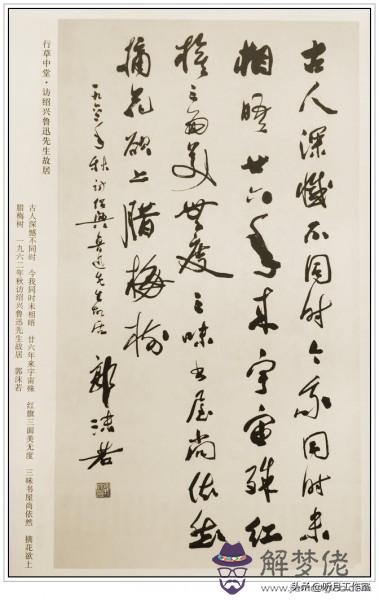 古人深憾不同时今我同时未
相晤廿六年来宇宙殊红
旗三面美無度三味书屋尚依然
摘花欲上腊梅树
一九六二年秋访绍興鲁迅先生故居
郭沫若
行草中堂·访绍兴鲁迅先生故居
古人深憾不同时 今我同时未相晤 廿六年来宇宙殊 红旗三面美无度 三味书屋尚依然 摘花欲上
腊梅树 一九六二年秋访绍兴鲁迅先生故居 郭沫若
解梦佬
头条@听月工作室